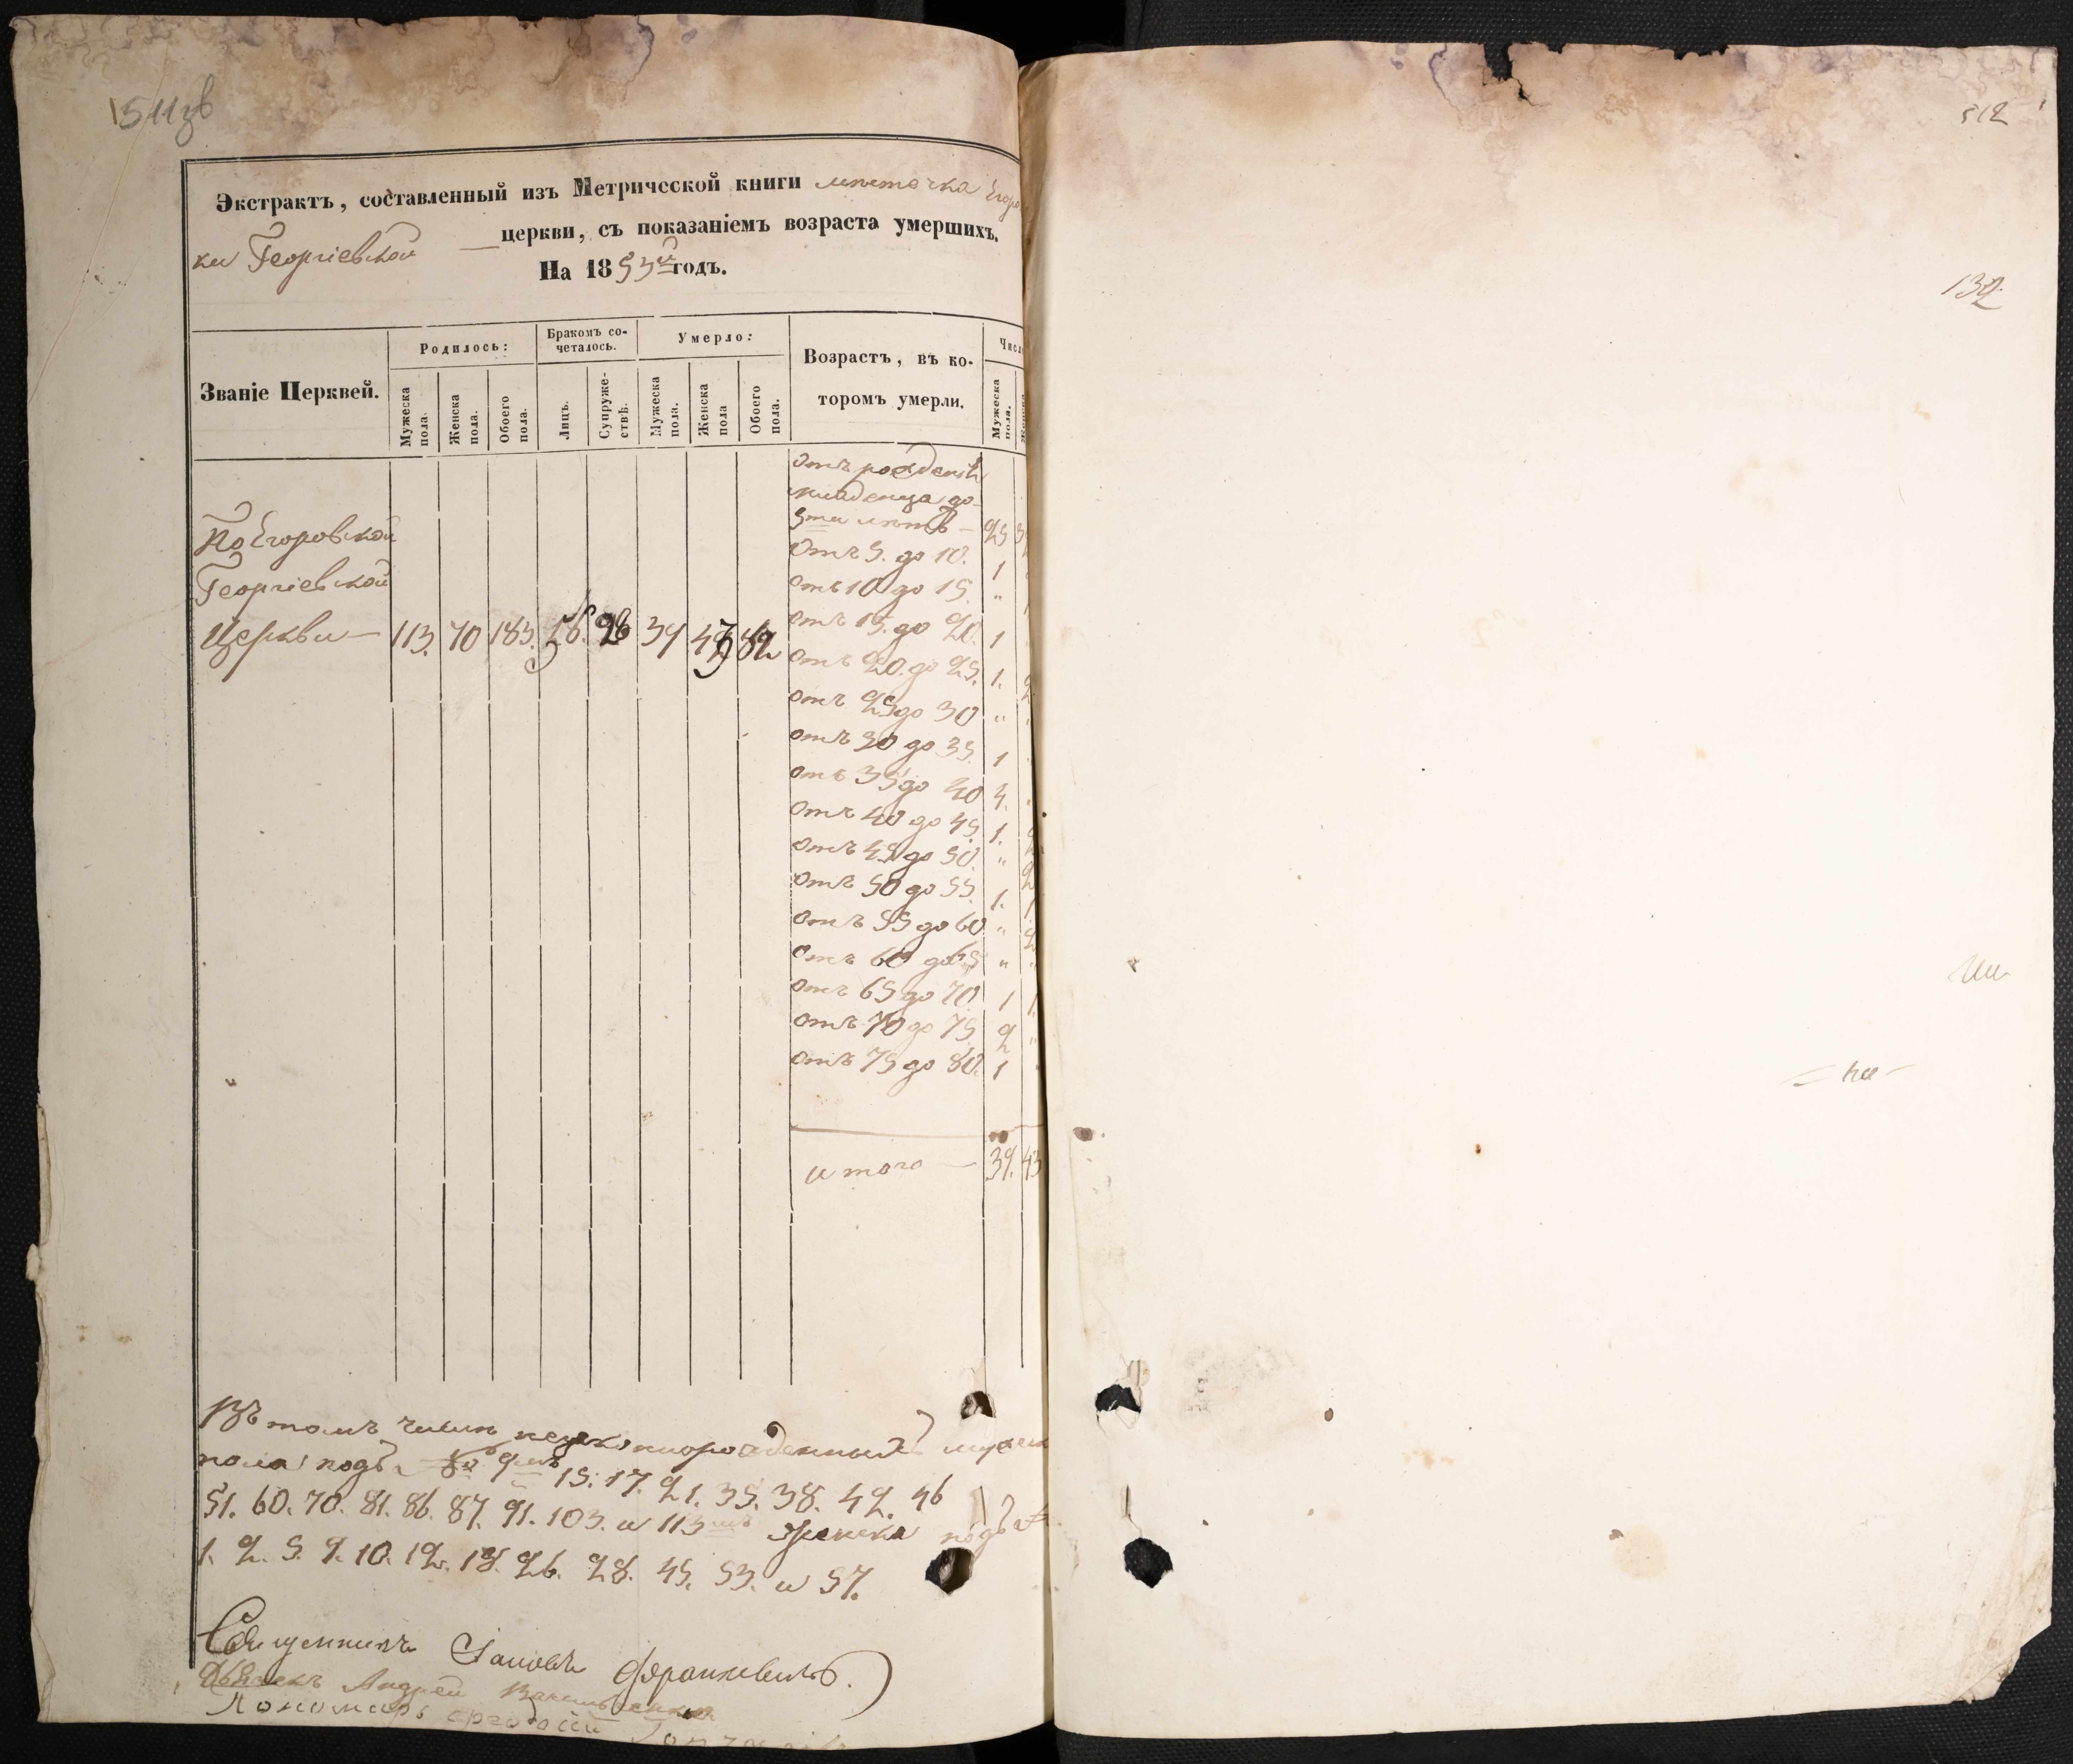 511зв
Экстрактъ, составленный изъ Метрической книги мѣстечка Егоров
ки Георгіевской — церкви, съ показаніемъ возраста умершихъ.
На 1853й годъ.
Званіе Церквей.
Родилось:
Бракомъ со-
четалось.
Умерло:
Возрастъ, въ ко-
торомъ умерли.
Число
Мужеска пола.
Женска пола.
Обоего пола.
Лицъ.
Супруже-
ствъ.
Мужеска пола.
Женска пола
Обоего пола.
Мужеска пола.
Женска
По Егоровской
Георгіевской
Церкви — 113. 70 183. 56. 28 39 43 82
Отъ рожденія
младенца до
5ти лѣтъ — 25
Отъ 5. до 10. 1
отъ 10 до 15. "
отъ 15. до 20. 1
отъ 20. до 25. 1. 2
отъ 25 до 30 " "
отъ 30 до 35. 1
отъ 35 до 40 4.
отъ 40 до 45. 1.
отъ 45 до 50. " 2
отъ 50 до 55. 1. 1
отъ 55 до 60 " 2
отъ 60 до 65 " "
отъ 65 до 70 1 1.
отъ 70 до 75 2 "
отъ 75 до 80. 1
итого — 39. 43
Въ томъ числѣ незаконнорожденныхъ мужеска
пола подъ 9мъ 15. 17. 21. 35. 38. 42. 46
51. 60. 70. 81. 86. 87. 91. 103. и 113мъ женска подъ №
1. 2. 5. 9. 10. 12. 18. 26. 28. 45. 53. и 57.
Священникъ Іаковъ Франкевичъ.
Дьячекъ Андрей
Пономарь
512
132